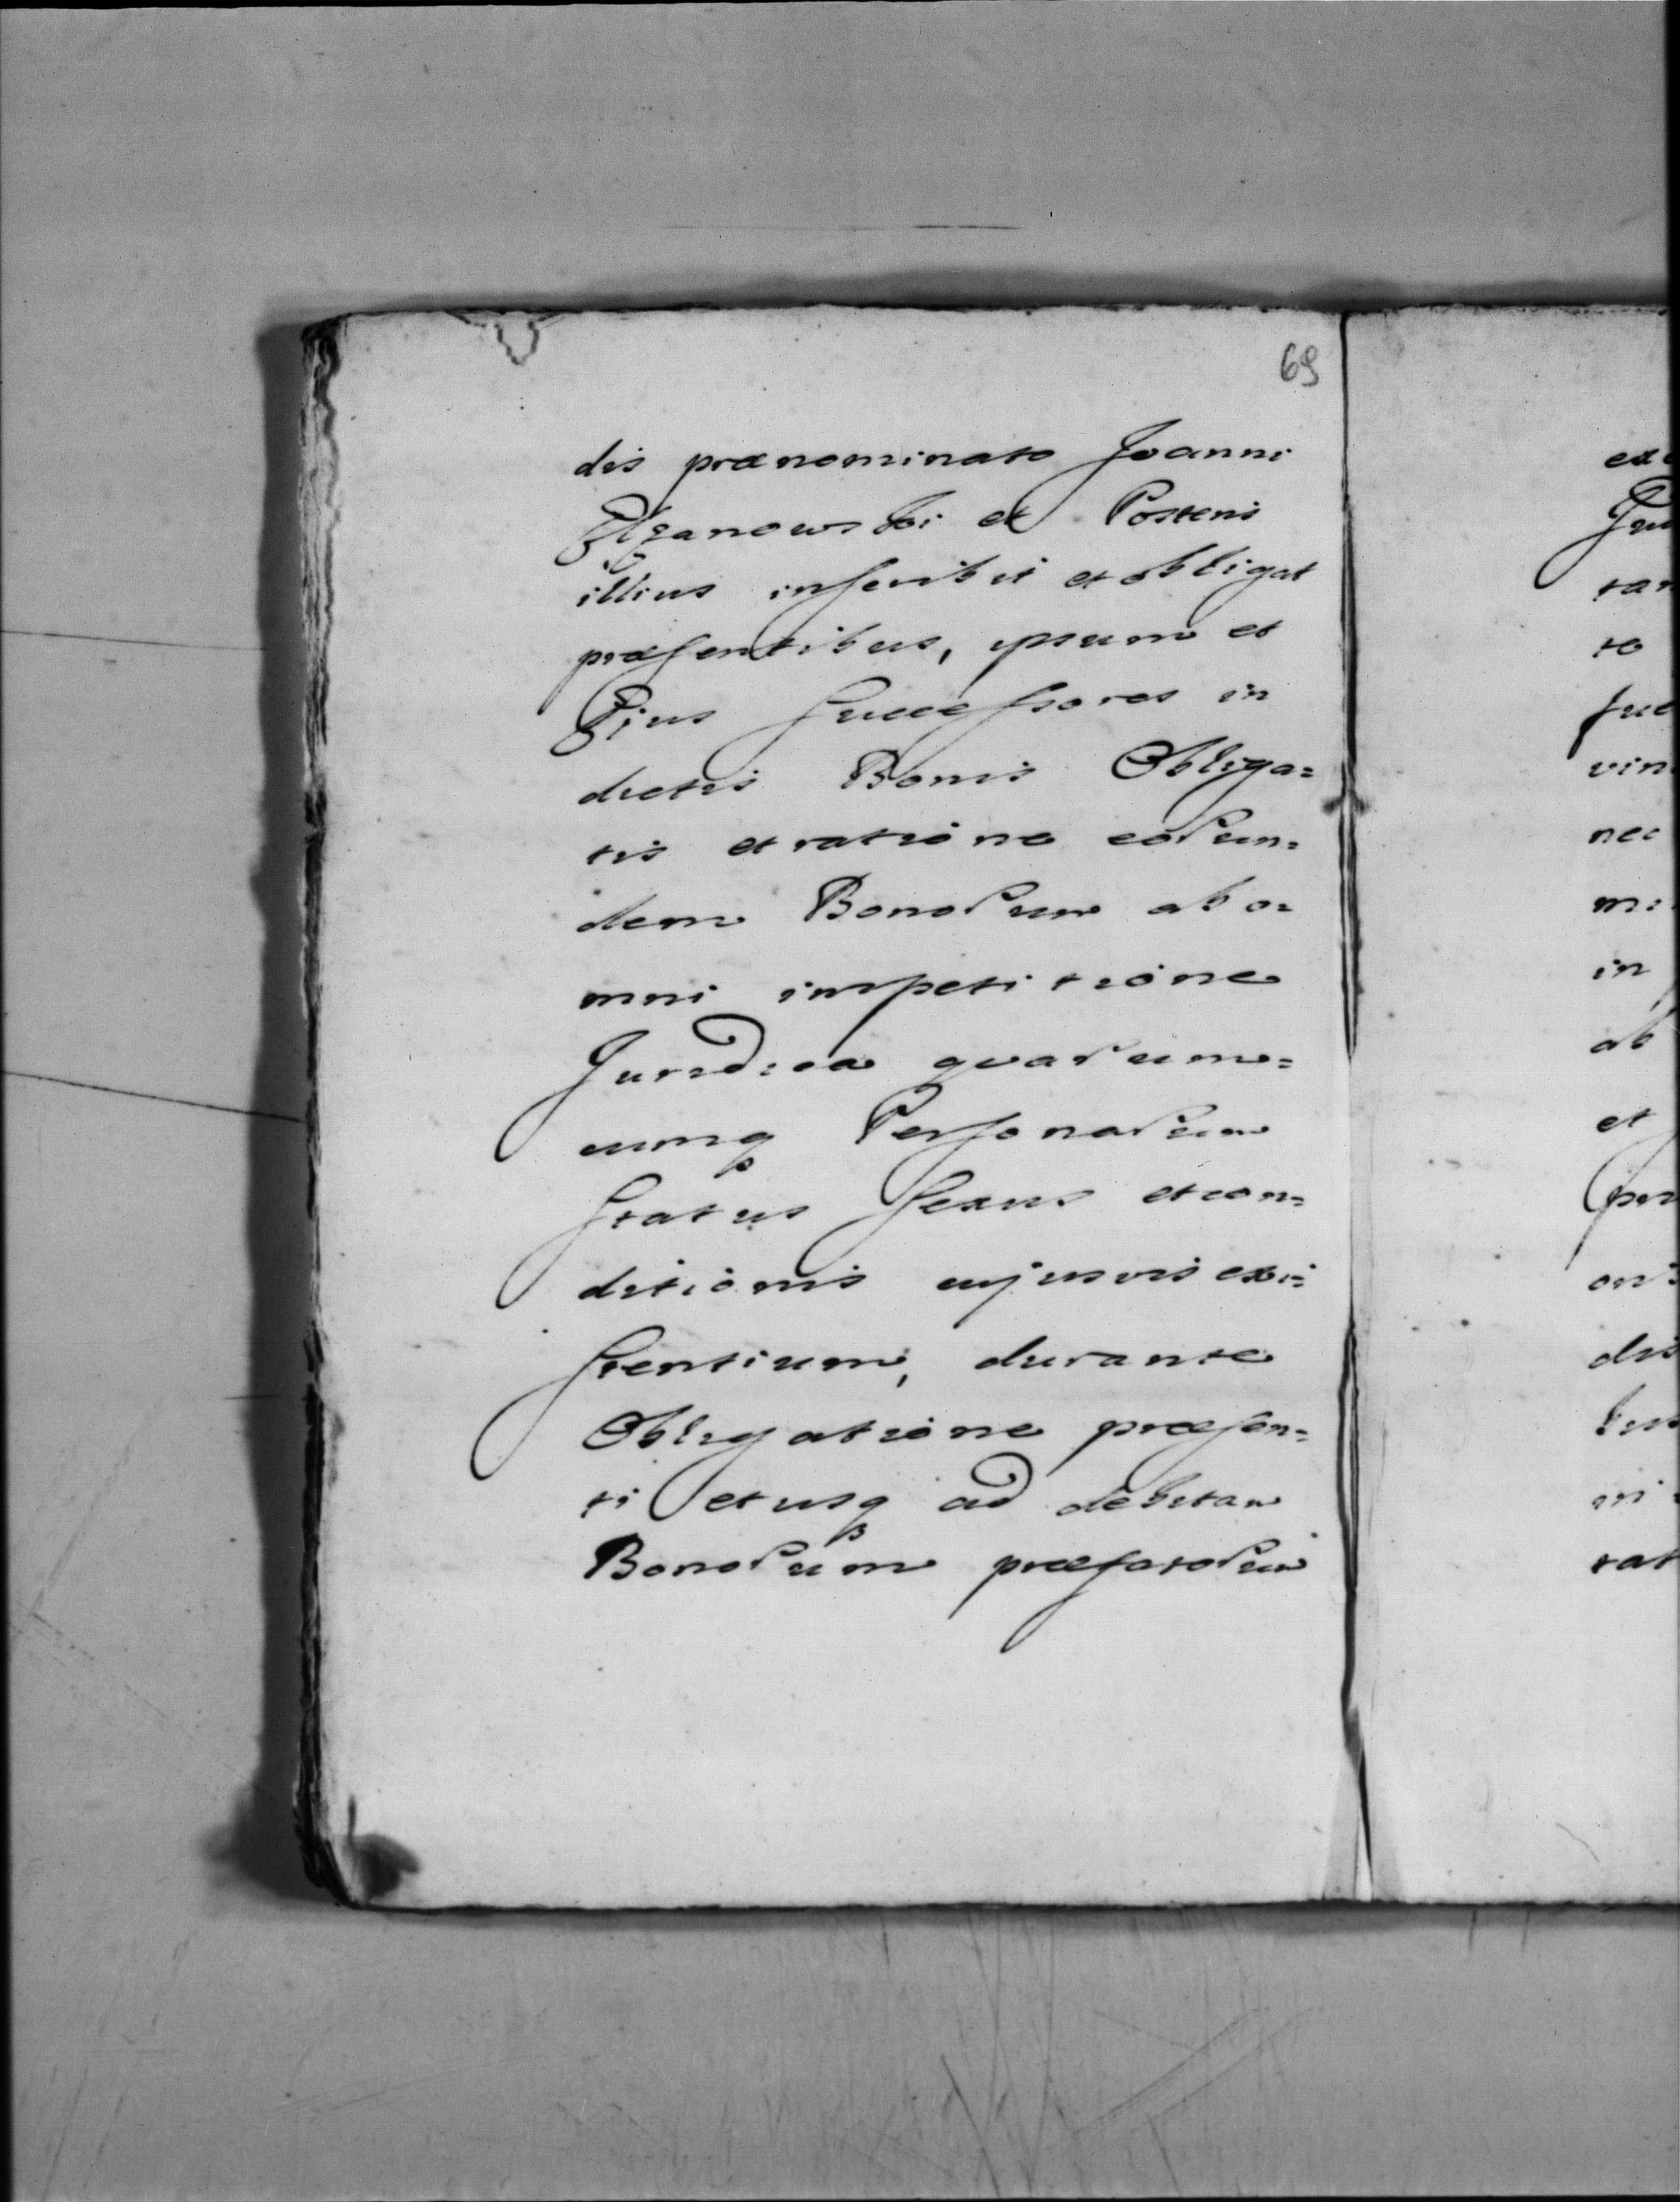 69
dis prænominato Joanni
Elzanowski et Posteris
illius inscribit et obligat
præsentibus, ipsum et
Ejus Successores in
dictis Bonis Obliga=
tis et ratione eorun=
dem Bonorum ab o=
mni impetitione
Juridica quarum=
cunq Personarum
Status Sexus et con=
ditionis cujusvis exi=
stentium, durante
Obligatione præsen=
ti et usq ad debitam
Bonorum præfatorum
to
vin
nec
in
ab
et